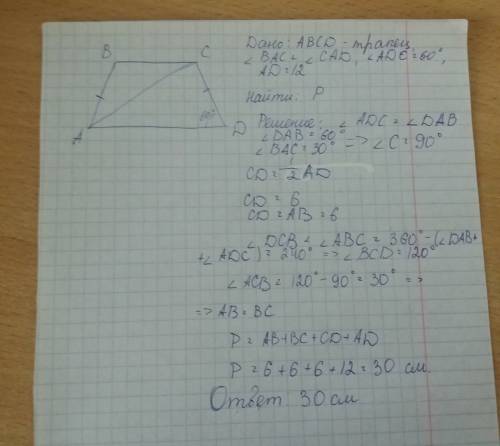 B C
A D
60°
Дано: ABCD - трапец.
∠BAC = ∠CAD, ∠ADC = 60°,
AD = 12
Найти: P
Решение: ∠ADC = ∠DAB
∠DAB = 60°
∠BAC = 30° => ∠C = 90°
CD = 1/2 AD
CD = 6
CD = AB = 6
∠DCB + ∠ABC = 360° - (∠DAB +
+ ∠ADC) = 240° => ∠BCD = 120°
∠ACB = 120° - 90° = 30° =>
=> AB = BC
P = AB + BC + CD + AD
P = 6 + 6 + 6 + 12 = 30 см.
Ответ 30 см